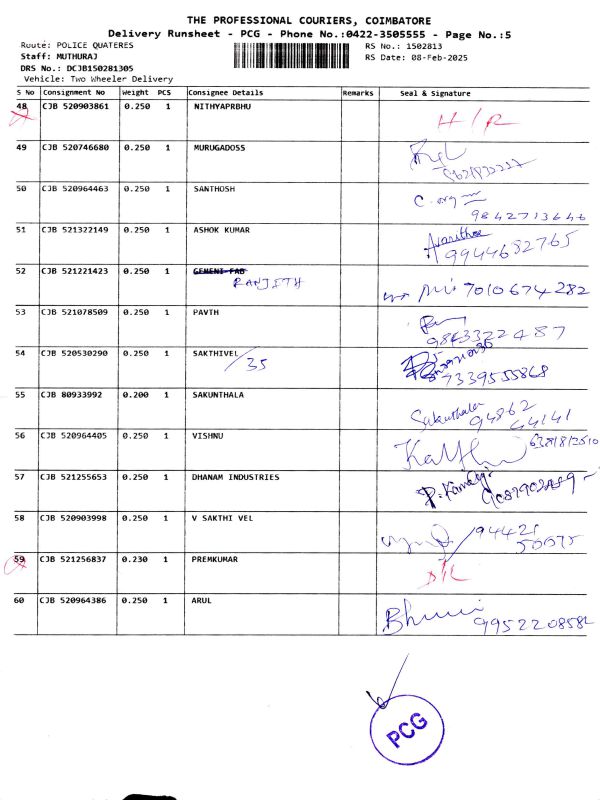 THE PROFESSIONAL COURIERS, COIMBATORE
Delivery Runsheet - PCG - Phone No.:0422-3505555 - Page No.:5
Route: POLICE QUATERES
RS No.: 1502813
Staff: MUTHURAJ
RS Date: 08-Feb-2025
DRS No.: DCJB150281305
Vehicle: Two Wheeler Delivery
S No Consignment No Weight PCS Consignee Details Remarks Seal & Signature
48 CJB 520903861 0.250 1 NITHYAPRBHU H/R
49 CJB 520746680 0.250 1 MURUGADOSS
50 CJB 520964463 0.250 1 SANTHOSH 9842713646
51 CJB 521322149 0.250 1 ASHOK KUMAR 9944682765
52 CJB 521221423 0.250 1 GEMENI FAB 7010674282
RANJITH
53 CJB 521078509 0.250 1 PAVTH
54 CJB 520530290 0.250 1 SAKTHIVEL /35 7339555868
55 CJB 80933992 0.200 1 SAKUNTHALA Sakunthala 94862
44141
56 CJB 520964405 0.250 1 VISHNU
57 CJB 521255653 0.250 1 DHANAM INDUSTRIES
58 CJB 520903998 0.250 1 V SAKTHI VEL 94421
59 CJB 521256837 0.230 1 PREMKUMAR D/L
60 CJB 520964386 0.250 1 ARUL
PCG